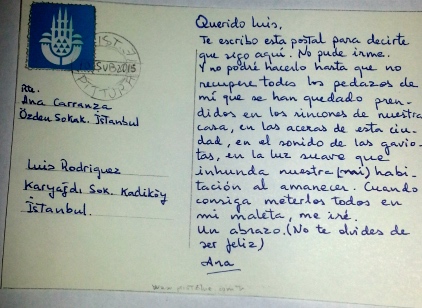 IST
SUB2015
PITTURA
Rte.
Ana Carranza
Özden Sokak. İstanbul
Luis Rodriguez
Karyağdı Sok. Kadiköy
İstanbul.
Querido Luis,
Te escribo esta postal para decirte
que sigo aquí. No pude irme.
Y no podré hacerlo hasta que no
recupere todos los pedazos de
mí que se han quedado pren-
didos en los rincones de nuestra
casa, en las aceras de esta ciu-
dad, en el sonido de las gavio-
tas, en la luz suave que
inhunda nuestra (mai) habi-
tación al amanecer. Cuando
consiga meterlos todos en
mi maleta, me iré.
Un abrazo. (No te olvides de
ser feliz)
Ana